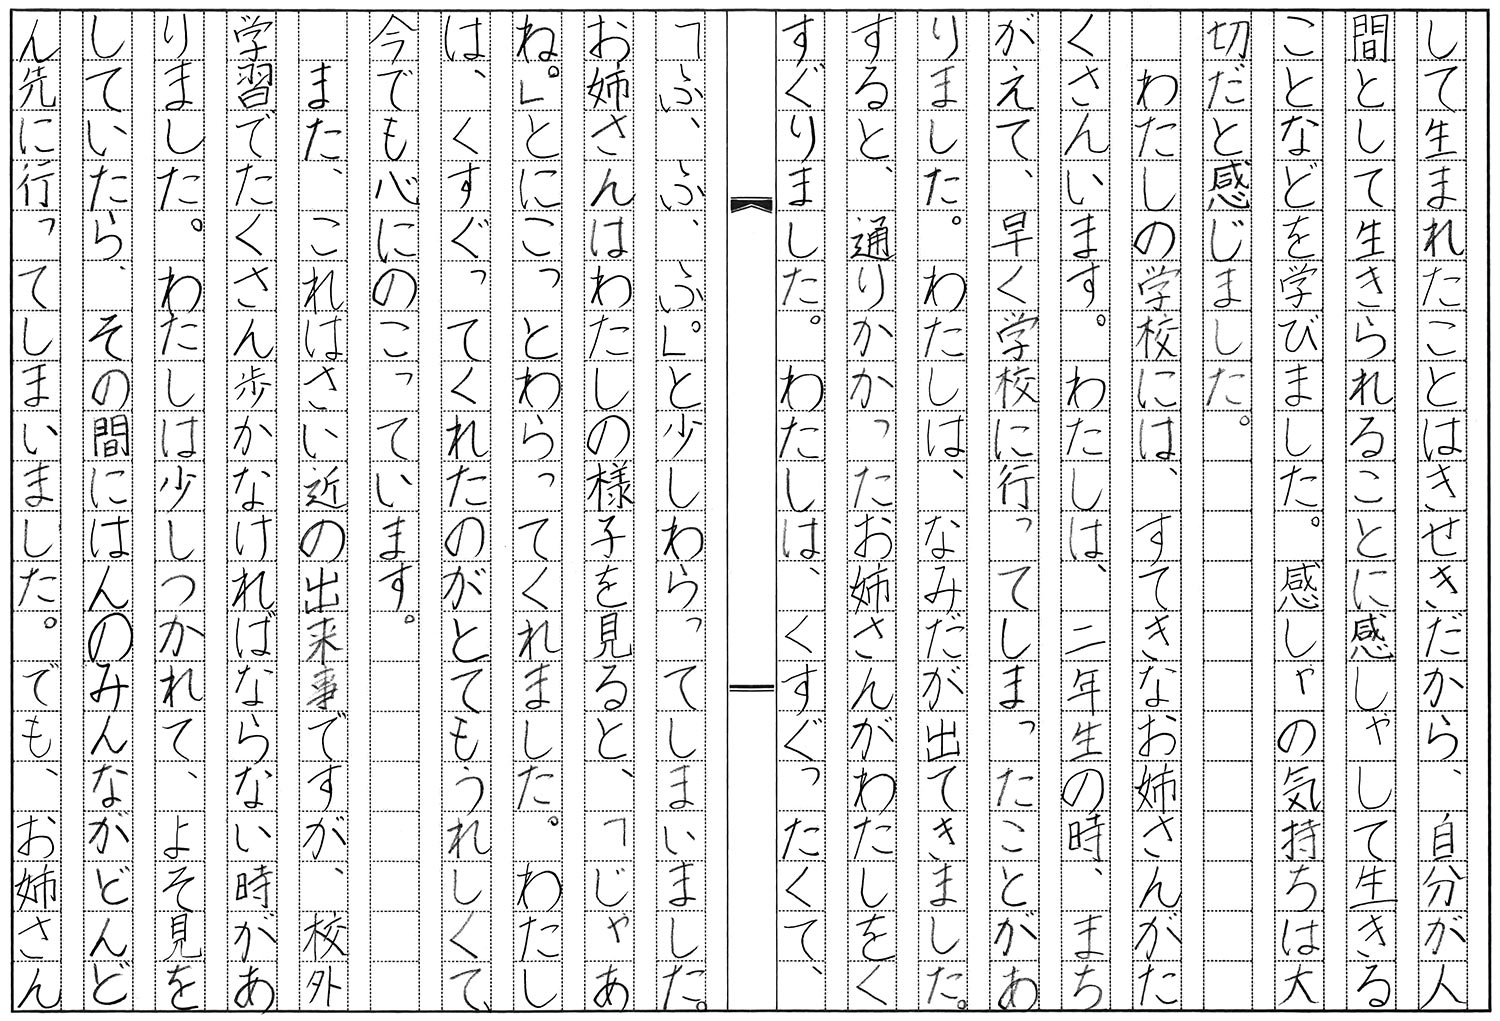 して生まれたことはきせきだから、自分が人
間として生きられることに感しゃして生きる
ことなどを学びました。感しゃの気持ちは大
切だと感じました。
　わたしの学校には、すてきなお姉さんがた
くさんいます。わたしは、二年生の時、まち
がえて、早く学校に行ってしまったことがあ
りました。わたしは、なみだが出てきました。
すると、通りかかったお姉さんがわたしをく
すぐりました。わたしは、くすぐったくて、
「ふ、ふ、ふ。」と少しわらってしまいました。
お姉さんはわたしの様子を見ると、「じゃあ
ね。」とにこっとわらってくれました。わたし
は、くすぐってくれたのがとてもうれしくて、
今でも心にのこっています。
　また、これはさい近の出来事ですが、校外
学習でたくさん歩かなければならない時があ
りました。わたしは少しつかれて、よそ見を
していたら、その間にはんのみんながどんど
ん先に行ってしまいました。でも、お姉さん